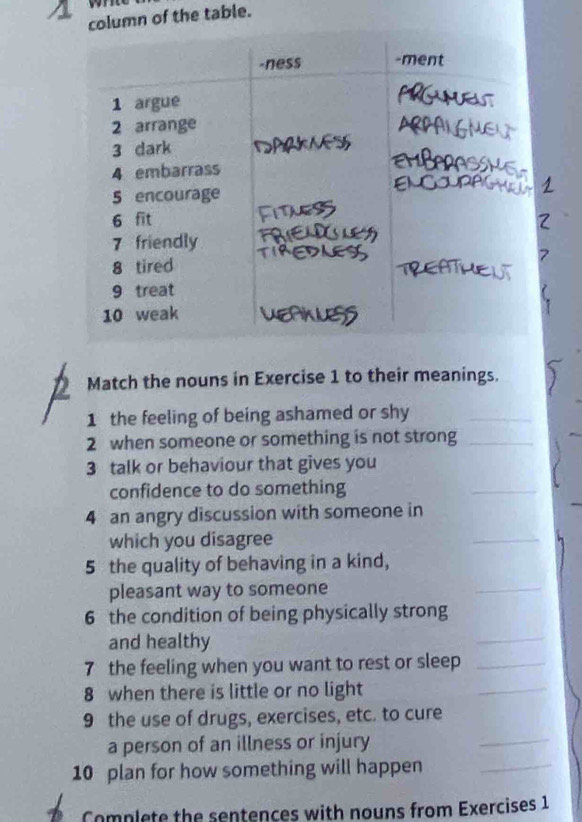 column of the table.
-ness -ment
1 argue ARGUMENT
2 arrange ARRANGMENT
3 dark DARKNESS
4 embarrass EMBARASSMENT
5 encourage ENCOURAGMENT 1
6 fit FITNESS 2
7 friendly FRIENDLNESS
8 tired TIREDNESS
9 treat TREATMENT
10 weak WEAKNESS
2 Match the nouns in Exercise 1 to their meanings.
1 the feeling of being ashamed or shy
2 when someone or something is not strong
3 talk or behaviour that gives you
confidence to do something
4 an angry discussion with someone in
which you disagree
5 the quality of behaving in a kind,
pleasant way to someone
6 the condition of being physically strong
and healthy
7 the feeling when you want to rest or sleep
8 when there is little or no light
9 the use of drugs, exercises, etc. to cure
a person of an illness or injury
10 plan for how something will happen
Complete the sentences with nouns from Exercises 1